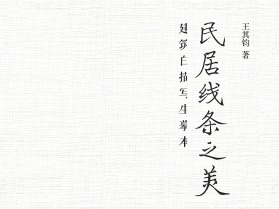 王其钧 著
民居线条之美
建筑白描写生摹本